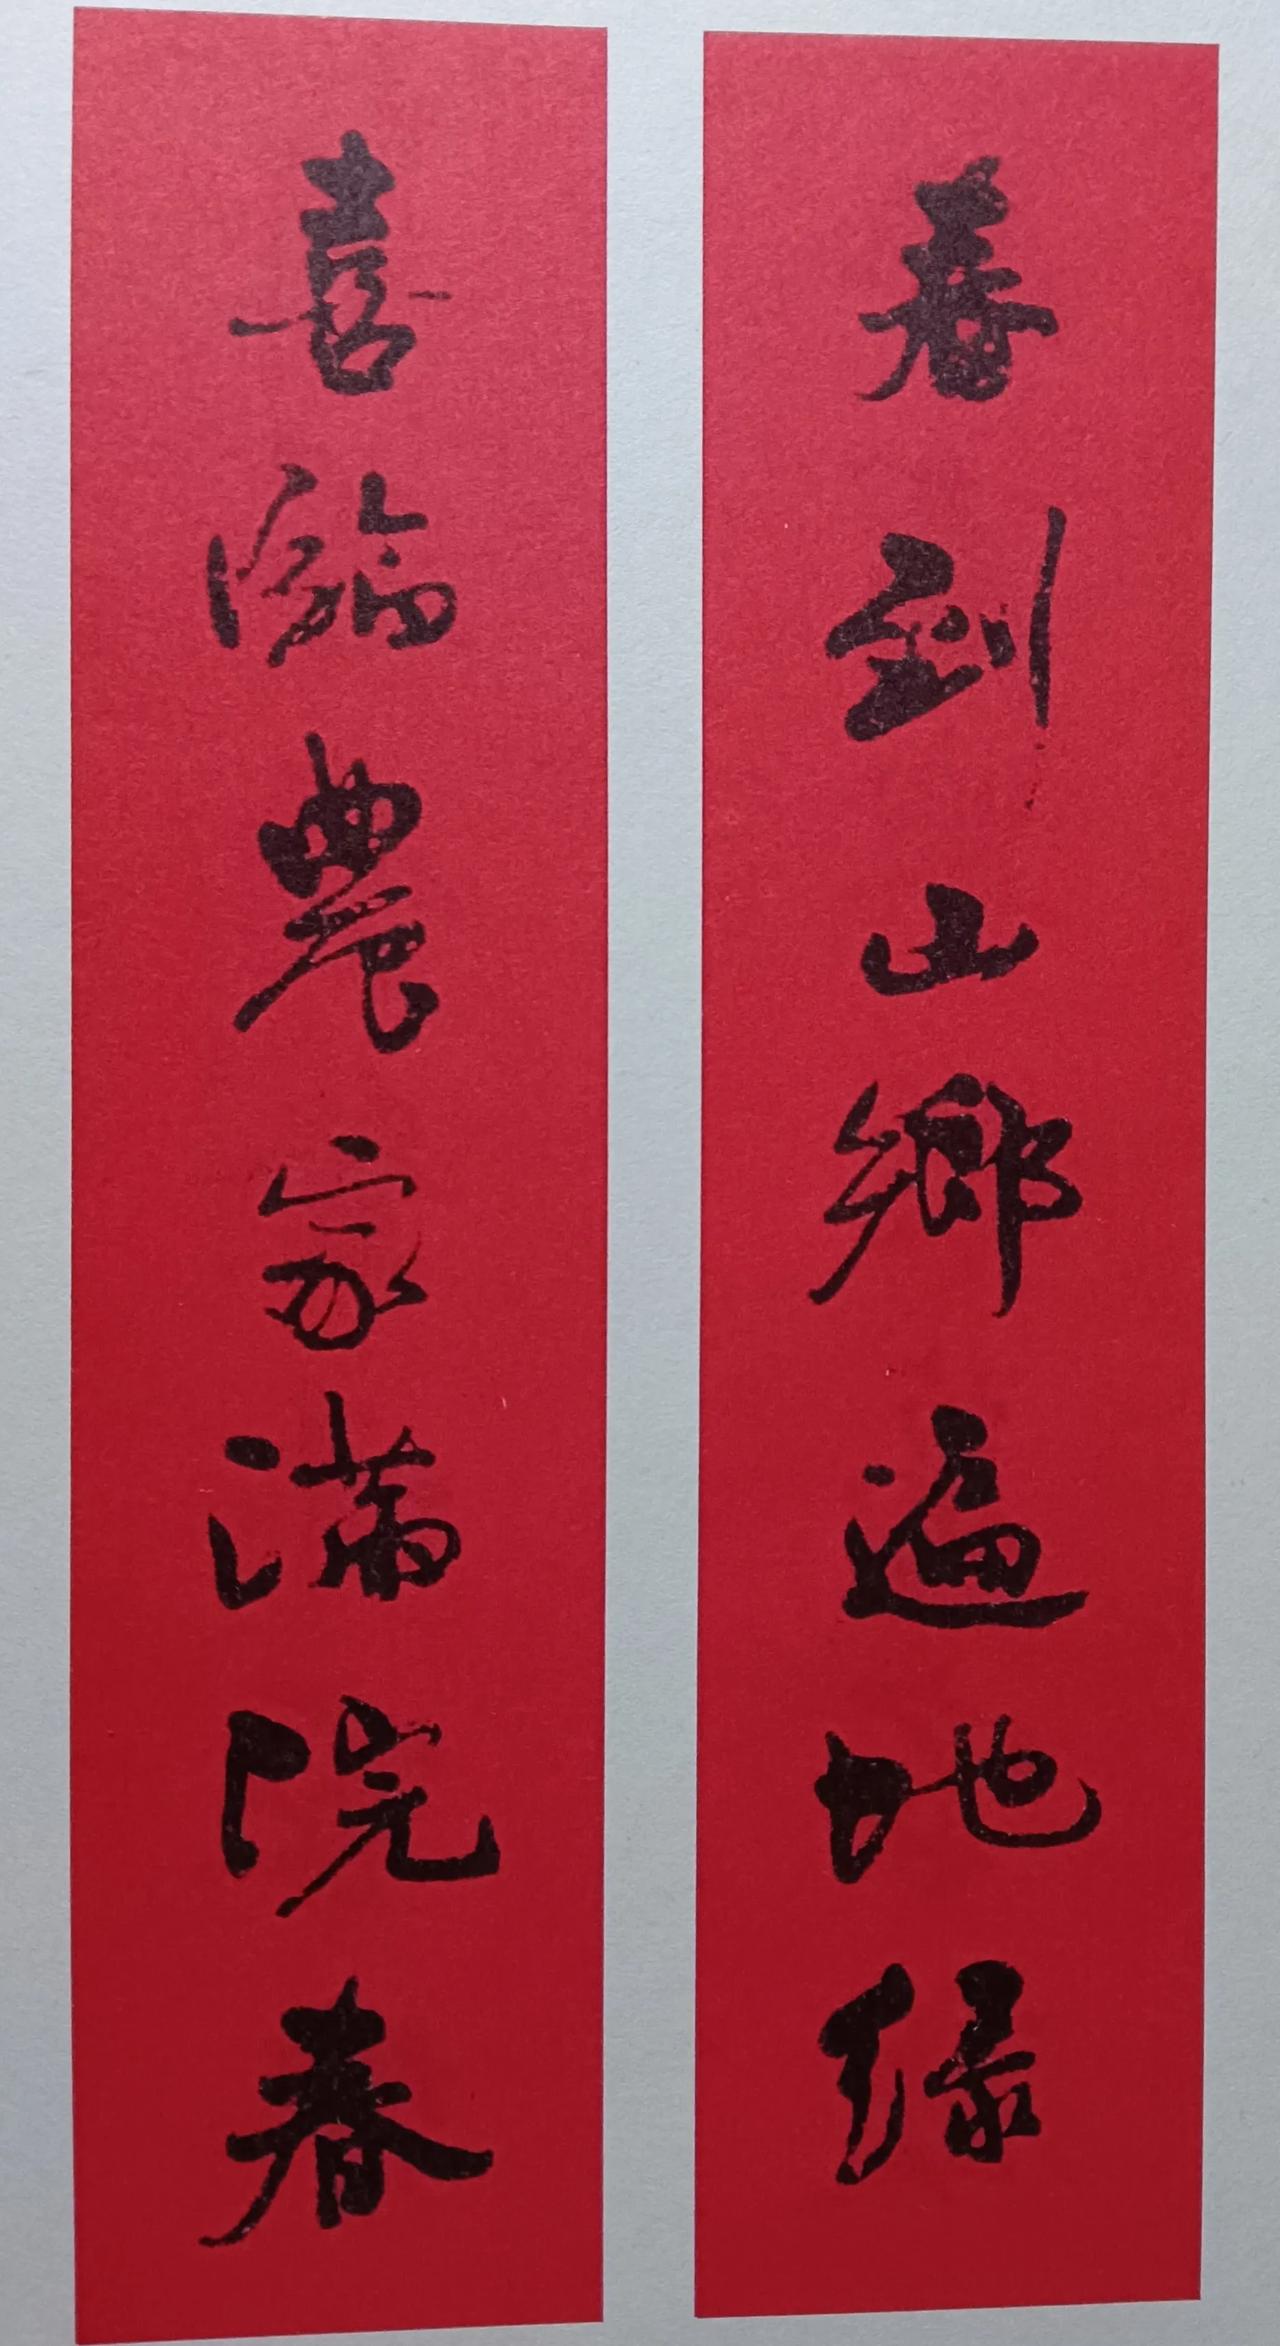 春到山鄉遍地绿
喜臨農家满院春